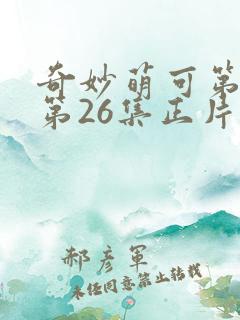 奇妙萌可第
第26集正片
郝彦军
未经同意禁止转载